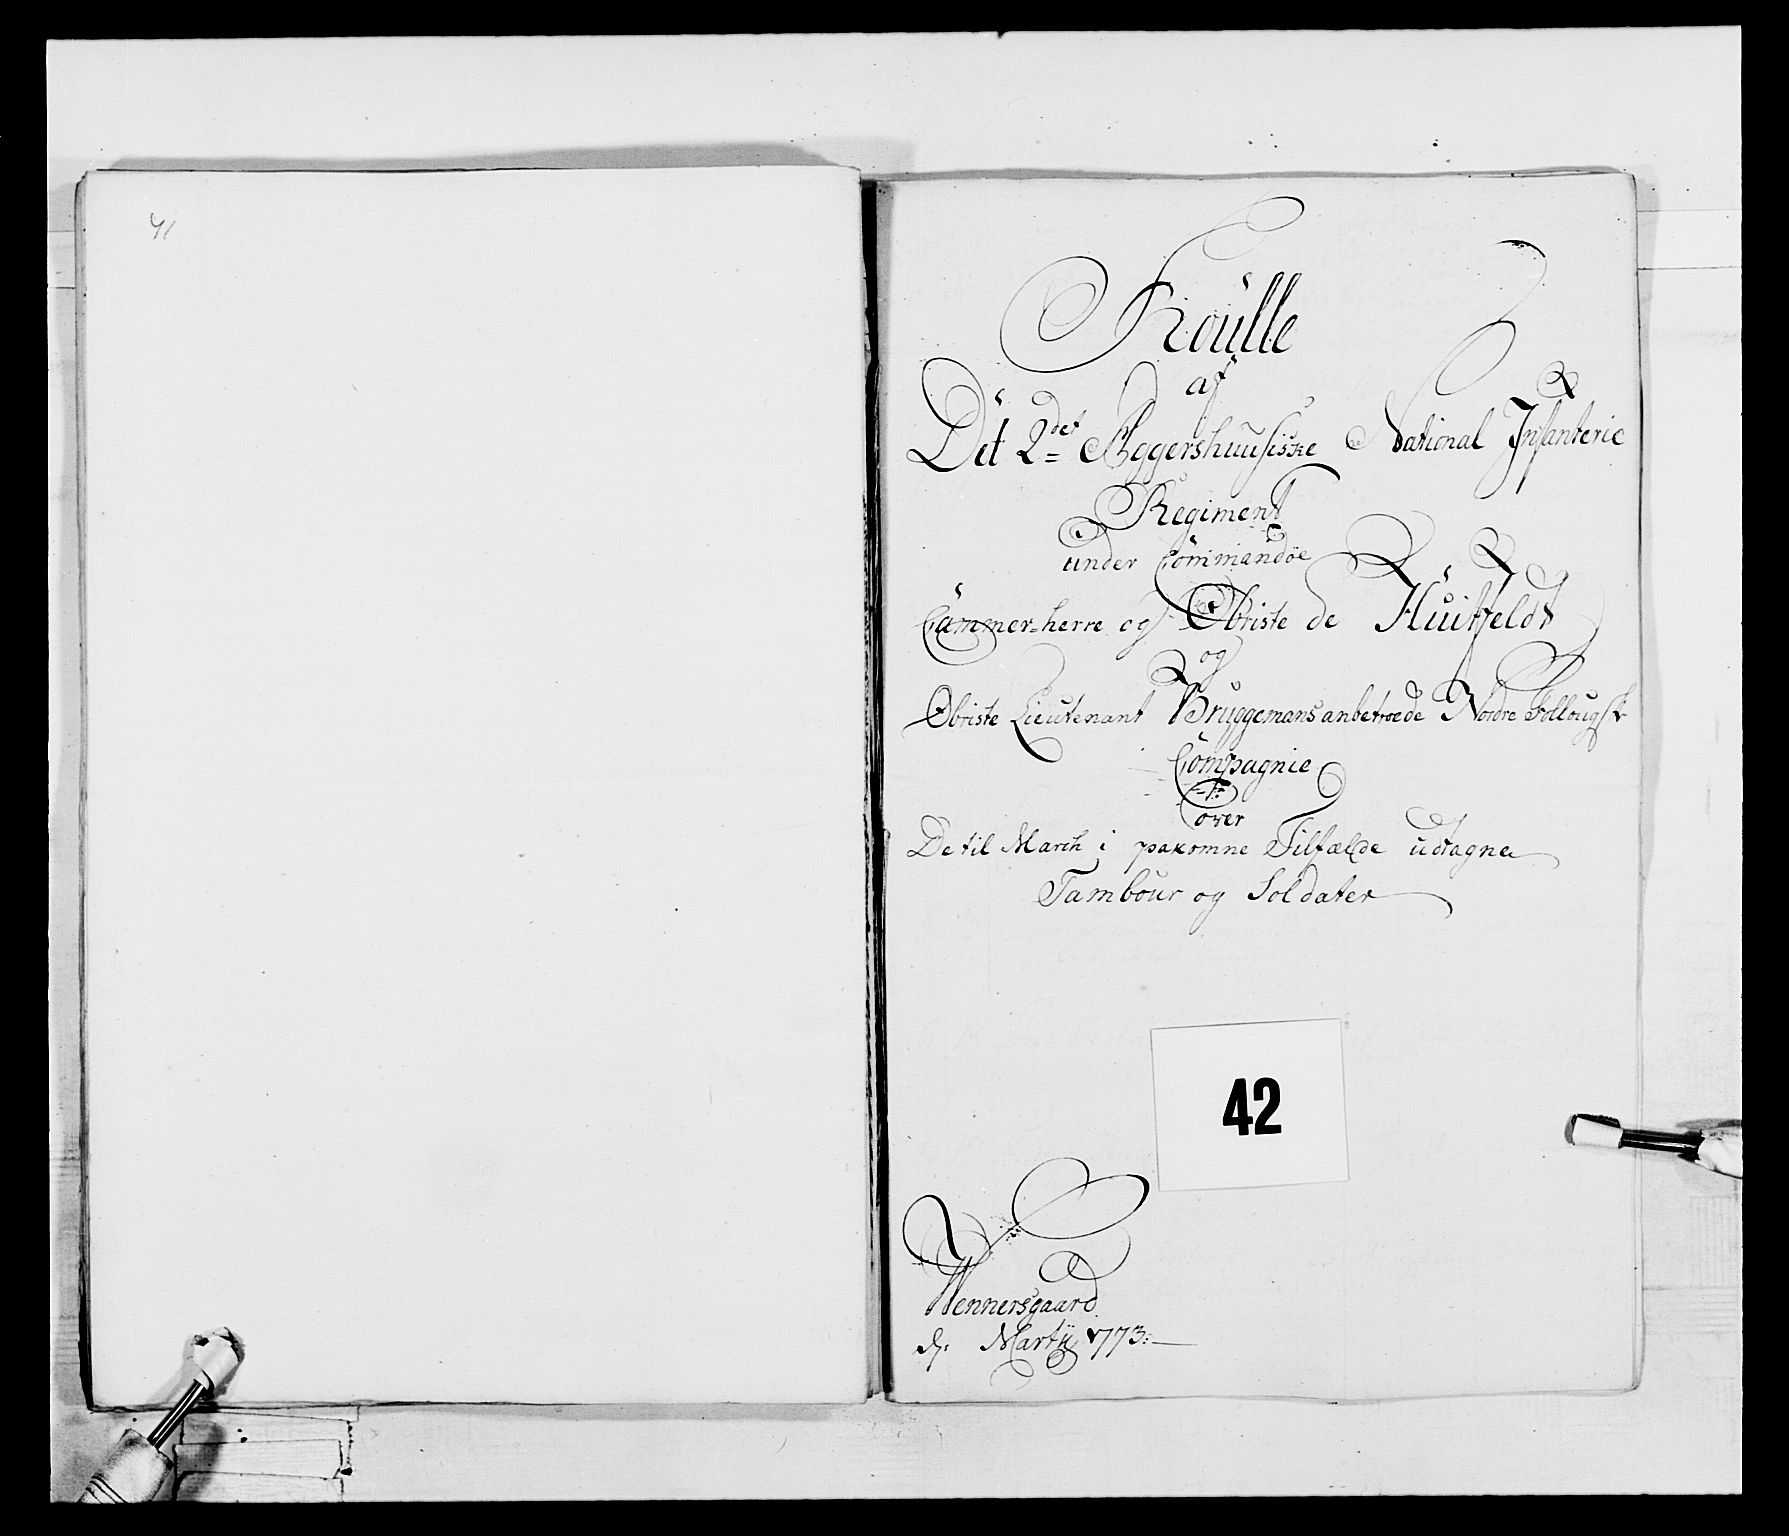 41
Roülle
af
Det 2det Aggershuusiske National Infanterie
Regiment
under Commandoe
Cammer-herre og Obriste de Hüitfeldt
og
Obriste Lieutenant Bruggemans anbetroede Nordre Follougsk
Compagnie
over
De til March i paakomne Tilfælde udtagne
Tambour og Soldater
42
Wennersgaard
d. Martii 1773: